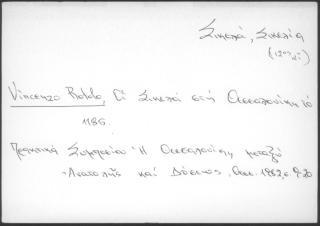 Σικελοί, Σικελία
(12ος αι)
Vincenzo Rotolo, Οἱ Σικελοί στή Θεσσαλονίκη τό
1185.
Πρακτικά Συμποσίου Ἡ Θεσσαλονίκη μεταξύ
Ἀνατολῆς καί Δύσεως, Θεσ. 1982, σ. 9-20